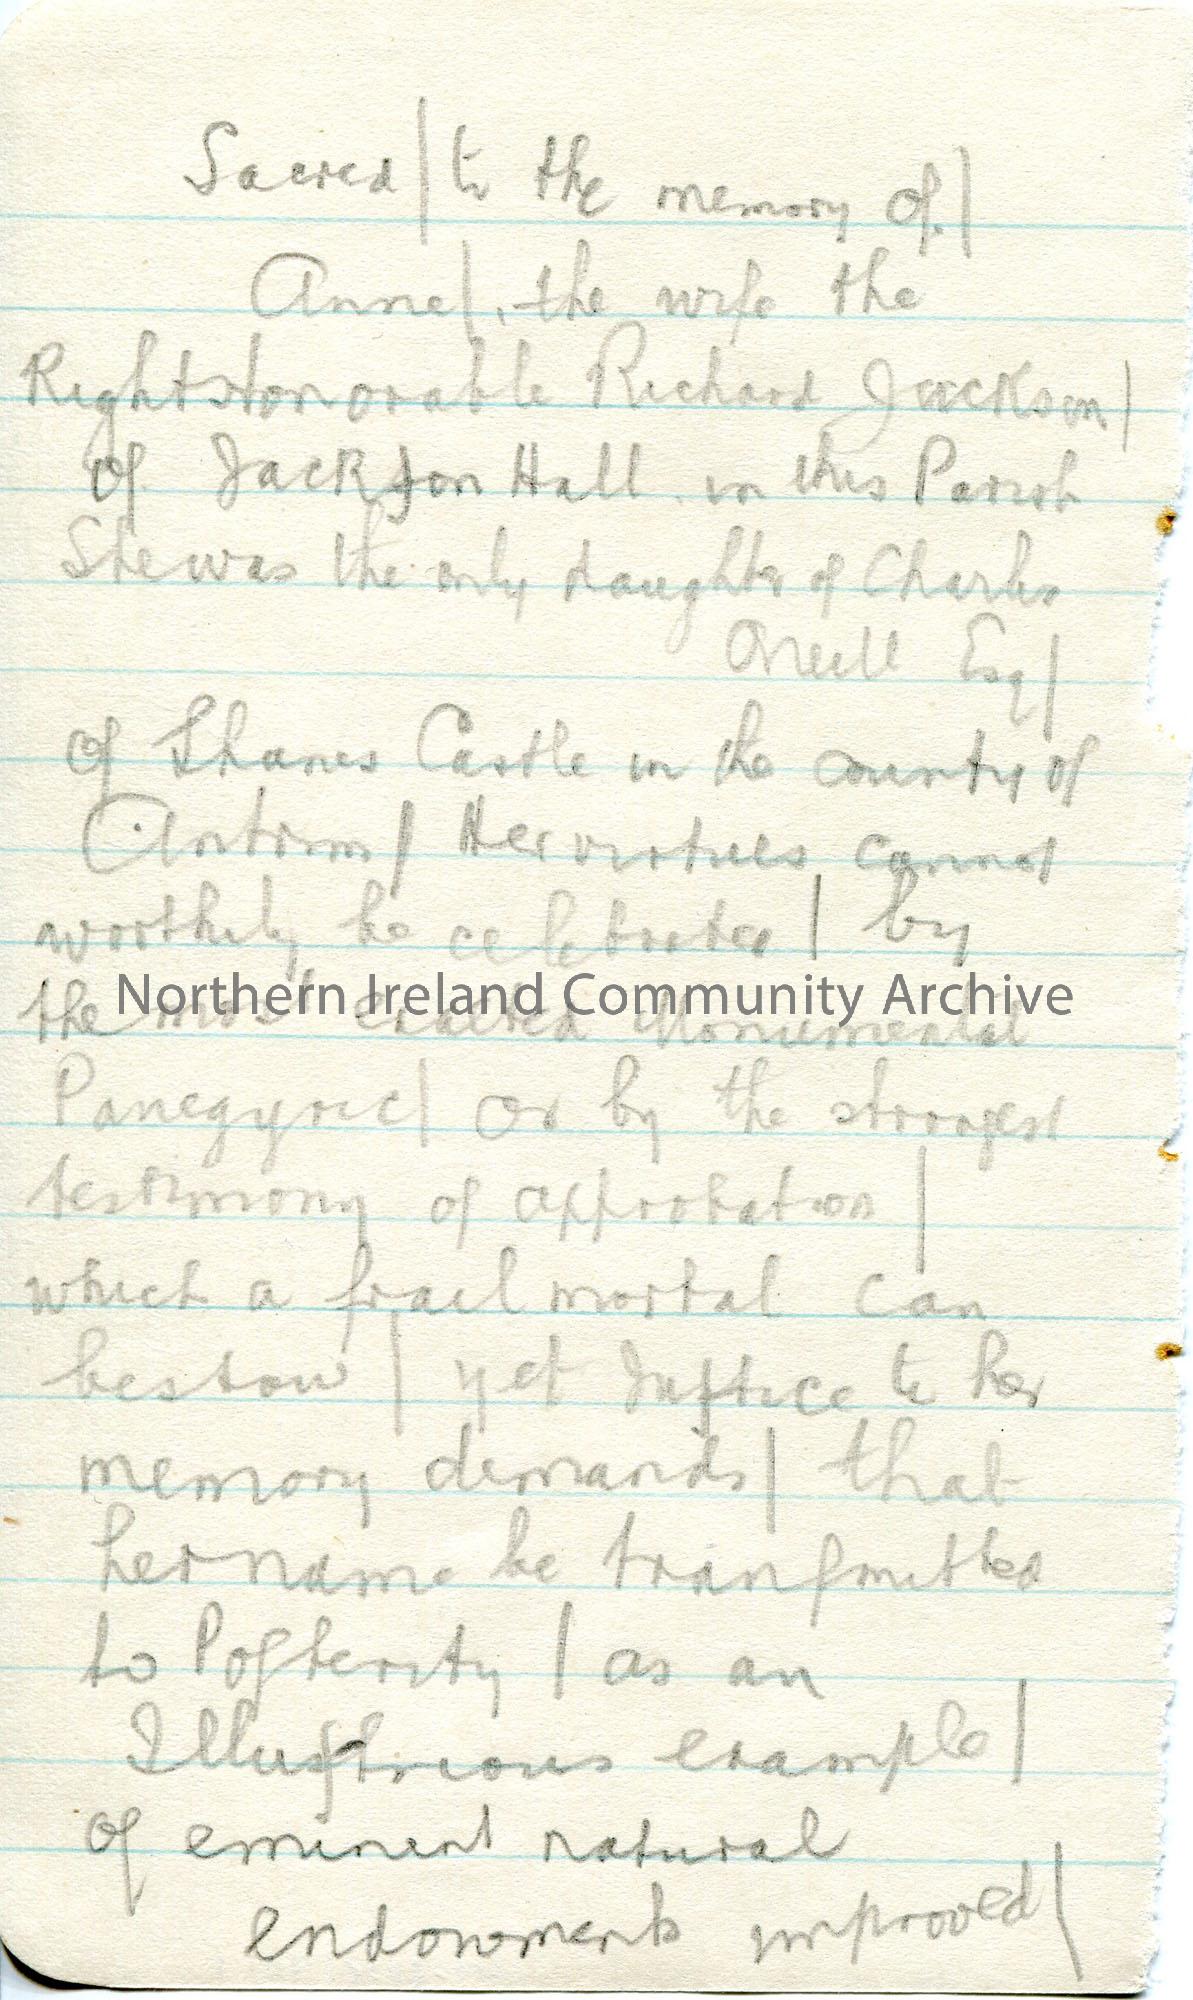 Sacred | to the memory of |
Anne |, the wife the
Right Honorable Richard Jackson |
of Jackſon Hall in this Parish
She was the only daughter of Charles
Oneill Esq |
of Shanes Castle in the county of
Antrim | Her virtues cannot
worthily be celebrated | by
the most exalted Monumental
Northern Ireland Community Archive
Panegyric | or by the strongest
testimony of approbation |
which a frael mortal can
bestow | yet Juſtice to her
memory demands | that
her name be tranſmitted
to Poſterity | as an
Illuſtrious example |
of eminent natural
endowments improved |